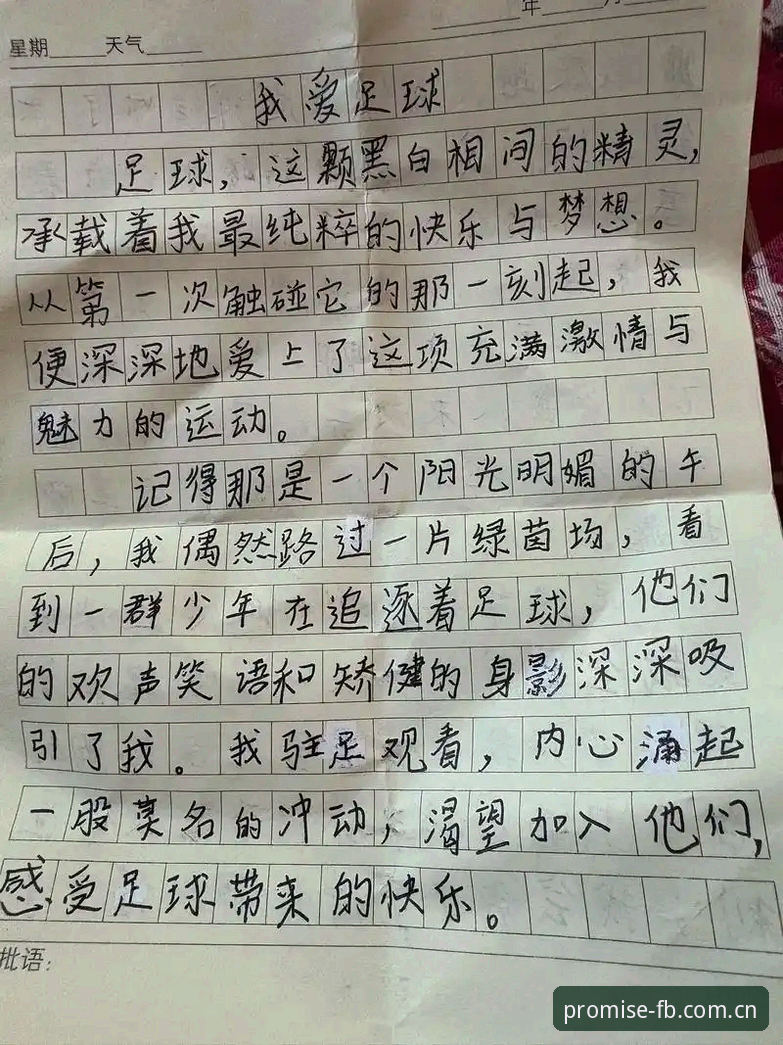 年 月
星期 天气
我爱足球
足球，这颗黑白相间的精灵，
承载着我最纯粹的快乐与梦想。
从第一次触碰它的那一刻起，我
便深深地爱上了这项充满激情与
魅力的运动。
记得那是一个阳光明媚的午
后，我偶然路过一片绿茵场，看
到一群少年在追逐着足球，他们
的欢声笑语和矫健的身影深深吸
引了我。我驻足观看，内心涌起
一股莫名的冲动，渴望加入他们，
感受足球带来的快乐。
批语：
promise-fb.com.cn